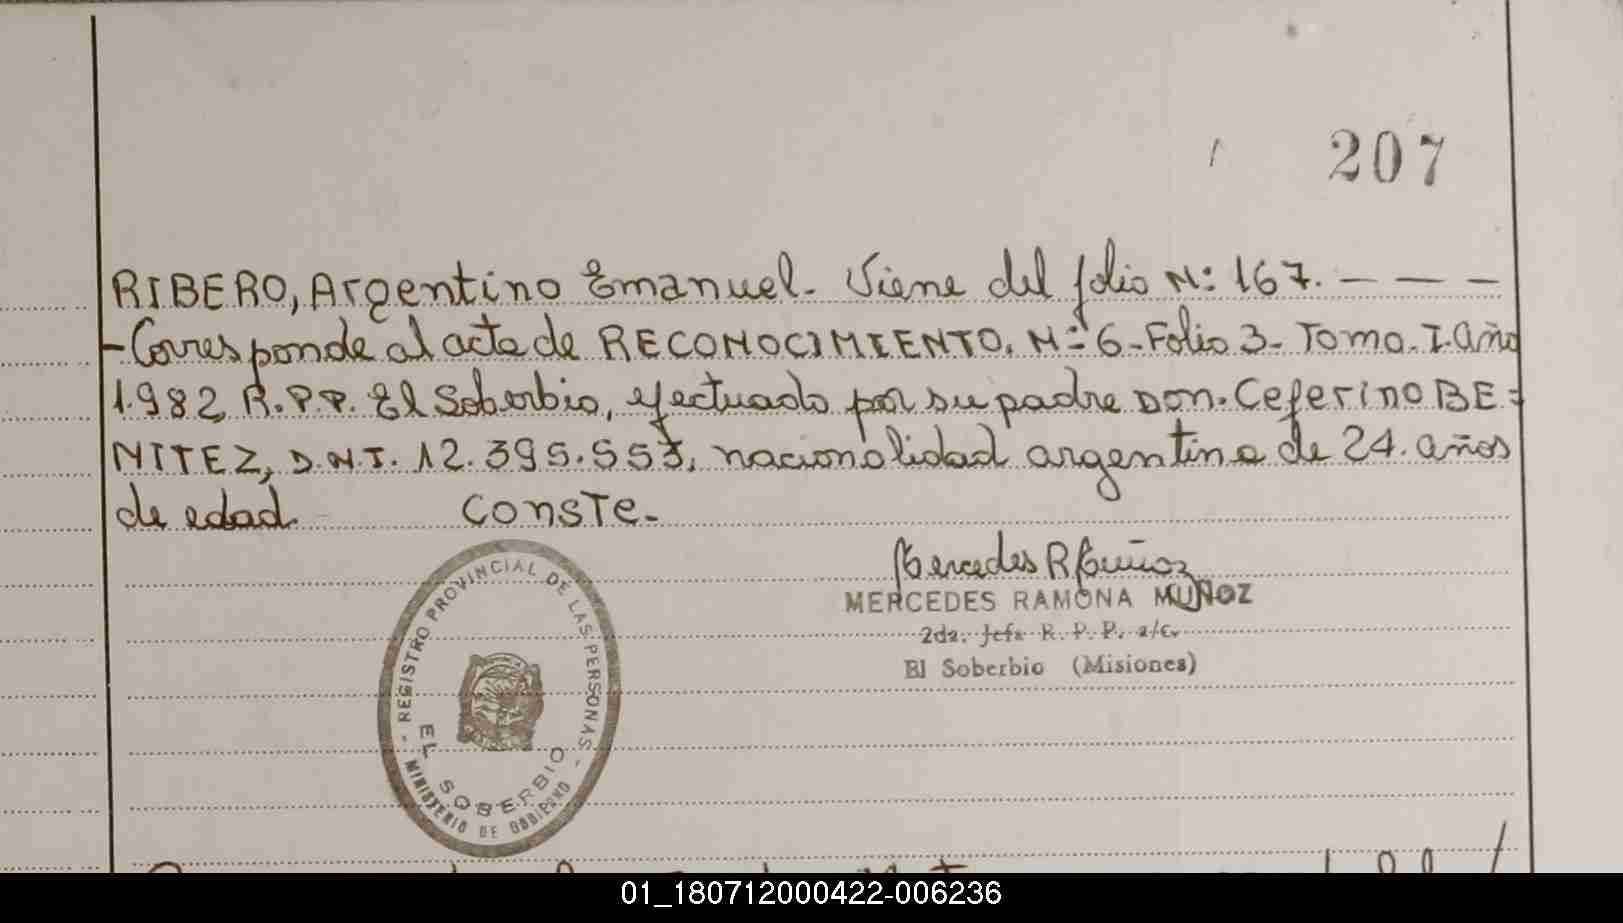 207
RIBERO, Argentino Emanuel. Viene del folio Nº: 167. — — —
-Corresponde al acta de RECONOCIMIENTO. Nº 6-Folio 3-Tomo. I. año
1.982, R.P.P. El Soberbio, efectuado por su padre Don. Ceferino BE=
NITEZ, D.N.I. 12.395.553, nacionalidad argentina de 24. años
de edad. CONSTE.-
Mercedes R Muñoz
MERCEDES RAMONA MUÑOZ
2da. Jefa R. P. P. a/c.
El Soberbio (Misiones)
- REGISTRO PROVINCIAL DE LAS PERSONAS -
EL SOBERBIO
MINISTERIO DE GOBIERNO
01_180712000422-006236